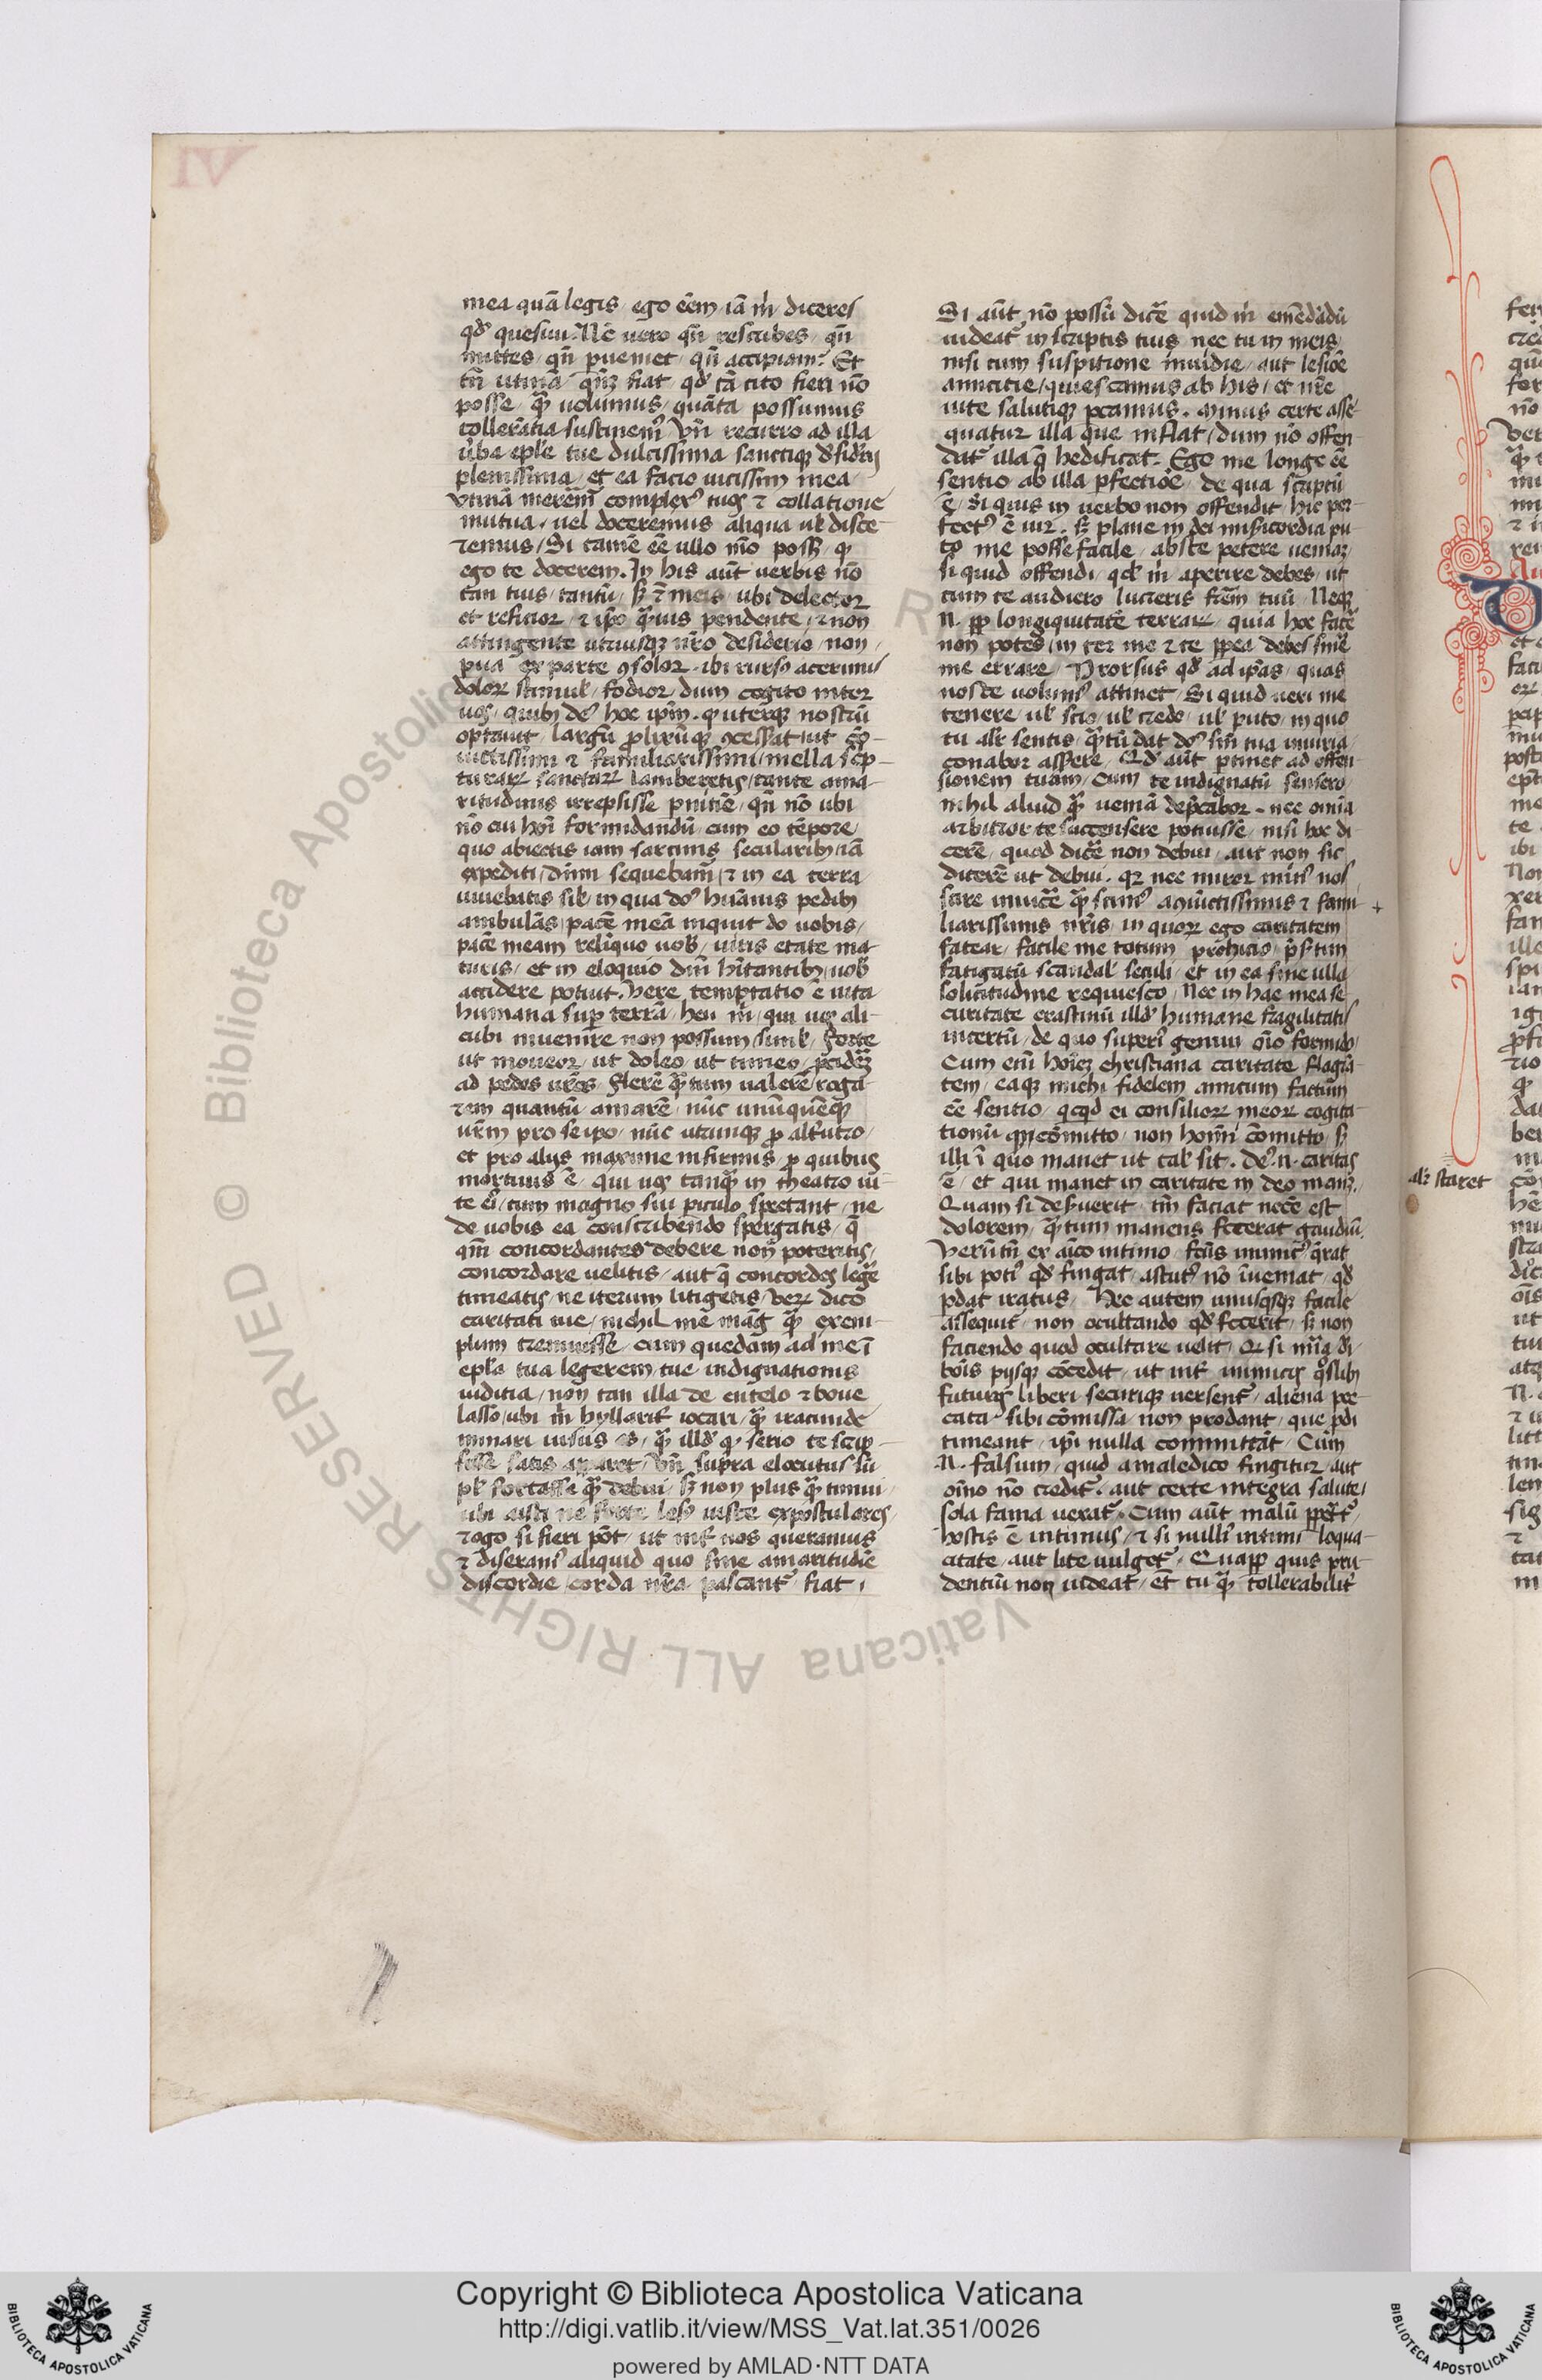 IV
mea quā legis ego eēm iā m̄ diceres
qd̄ quesiui. Nc̄ uero qn̄ rescribes qn̄
mittes qn̄ pueniet qn̄ accipiam? Et
tn̄ utinā fiat qd̄ tā cito fieri nō
posse q̄ uolumus quāta possumus
tollerātia sustinem⁹ Vn̄ recurro ad illa
ūba epl̄e tue dulcissima sanctiqꝫ
plenissima et ea facio uicissim mea
utinā complex⁹ tuos ⁊ collatione
mutua uel doceremus aliqua ul̓ disce-
remus Si tamē eē ullo mō possꝫ ꝙ
ego te docerem. In his aūt uerbis nō
tan tuis tantū sꝫ ⁊ meis ubi delector
et reficior ⁊ ip̄o q̄uis pendente ⁊ non
attingente utriusqꝫ nr̄o desiderio non
pua ex parte ꝯsolor ibi rurs⁹ acerrimis
doloꝝ stimul̓ fodior dum cogito inter
uos quibꝫ de⁹ hoc ip̄m ꝙ uterqꝫ nostrū
optauit largū ꝓlixūqꝫ ꝯcesserat ut cō-
iūctissimi ⁊ familiarissimi mella sc̄p-
turaꝝ sanctaꝝ lamberetis tante ama-
ritudinis irrepsisse pnitiē qn̄ nō ubi
nō cui hōi formidandū cum eo tēpore
quo abiectis iam sarcinis secularibꝫ iā
expediti dn̄m sequebam̄ ⁊ in ea terra
uiuebatis sil̓ in qua dn̄s humanis pedibꝫ
ambulās pacē meā inquit do uobis
pacē meam relinquo uob̄ uiris etate ma-
turis et in eloquio dn̄i hītantibꝫ uob̄
accidere potuit. Vere temptatio ē uita
humana sup terrā heu m̄ qui uos ali-
cubi inuenire non possum simul̓ forte
ut moueor ut doleo ut timeo
ad pedes ur̄os flerē q̄tum ualerē roga-
rem quantū amarē nūc unūquēqꝫ
ur̄m pro seip̄o nūc utrunqꝫ ꝓ alt̓utro
et pro alijs maxime infirmis ꝓ quibus
mortuus ē qui uos tanq̄ in theatro ui-
te cū magno sui piculo spectant ne
de uobis ea conscribendo spergatis q̄
qn̄ concordantes debere non poteritis
concordare uelitis aut q̄ concordes legere
timeatis ne iterum litigetis Veꝝ dico
caritati tue nichil me mag̓ q̄ exem-
plum tremuisse cum quedam ad me ī
epl̄a tua legerem tue indignationis
inditia non tan illa de entelo ⁊ boue
lasso ubi m̄ hyllarit̓ iocari q̄ iracunde
minari uisus es q̄ illd̓ ꝙ serio te scrip-
sisse satis apparet Vn̄ supra elocutus sū
pl⁹ fortasse q̄ debui sꝫ non plus q̄ timui
ubi aisti ne forte les⁹ iuste expostulares
rogo si fieri pōt ut int̓ nos queramus
⁊ diseram⁹ aliquid quo sine amaritudīe
discordie corda nr̄a pascant̓ fiat
Si aūt nō possū dicere quid m̄ emēdādū
uideat̓ in scriptis tuis nec tu in meis
nisi cum suspitione inuidie aut lesiōe
amicitie quiescamus ab his et nr̄e
uite salutiqꝫ pcamus. Minus certe asse-
quatur illa que inflat dum nō offen-
dat̓ illa q̄ hedificat. Ego me longe eē
sentio ab illa pfectiōe de qua scriptū
ē Si quis in uerbo non offendit hic per-
fect⁹ ē uir. sꝫ plane in dei misericordia pu-
to me posse facile abs te petere ueniam
si quid offendi qd̓ m̄ aperire debes ut
cum te audiero lucreris frēm tuū Neqꝫ
n. ꝓp longiquitatē terraꝝ quia hoc facē
non potes inter me ⁊ te debes sinere
me errare Prorsus qd̓ ad ip̄as quas
nosce uolum⁹ attinet Si quid ueri me
tenere ul̓ scio ul̓ credo ul̓ puto in quo
tu alit̓ sentis q̄tū dat dn̄s sine tua iniuria
conabor assere Qd̓ aūt ptinet ad offen-
sionem tuam Cum te indignatū sensero
nihil aliud q̄ ueniā depcabor nec omīa
arbitror te succensere potuisse nisi hoc di-
cerē quod dicere non debui aut non sic
dicerē ut debui. qꝛ nec miror min⁹ nos
scire inuicē q̄ scim⁹ a ꝯiūctissimis ⁊ fami-
liarissimis nr̄is in quoꝝ ego caritatem
fateor facile me totum prohicio p̄s̓tim
fatigatū scandal̓ seculi et in ea sine ulla
solicitudine requiesco Nec in hac mea se-
curitate crastinū illd̓ humane fragilitatis
incertū de quo superi⁹ gemui oīo formido
Cum enī hoīem christiana caritate flagrā-
tem eaqꝫ michi fidelem amicum factum
eē sentio qcqd̓ ei consilioꝝ meoꝝ cogita-
tionū cōmitto non homī cōmitto sꝫ
illi ī quo manet ut tal̓ sit. De⁹. n. caritas
ē et qui manet in caritate in deo manꝫ
Quam si deseruerit tm̄ faciat necē est
dolorem q̄tum manens fecerat gaudiū
Verūtn̄ ex aīco intimo fcūs inimic⁹ q̄rat
sibi poti⁹ qd̓ fingat astut⁹ nō īueniat qd̓
pdat iratus Hec autem unusqsqꝫ facile
assequit̓ non ocultando qd̓ fecerit sꝫ non
faciendo quod ocultare uelit Q si mīa dī
bonis pijsqꝫ cōcedit ut int̓ inimicos qslibꝫ
futuros liberi securiqꝫ uersent̓ aliena pec-
cata sibi cōmissa non prodant que pdi
timeant ip̄i nulla committāt Cum
n. falsum quid a maledico fingitur aut
oīno nō credit̓ aut certe integra salute
sola fama uexat̓ Cum aūt malū
hostis ē intimus ⁊ si nulli⁹ intimi loqua-
citate aut lite uulget̓ Quapp quis pru-
dentiū non uideat et̄ tu q̄ tollerabilit̓
al̓ staret
Copyright © Biblioteca Apostolica Vaticana
http://digi.vatlib.it/view/MSS_Vat.lat.351/0026
powered by AMLAD·NTT DATA
BIBLIOTECA APOSTOLICA VATICANA
BIBLIOTECA APOSTOLICA VATICANA
© Biblioteca Apostolica Vaticana ALL RIGHTS RESERVED